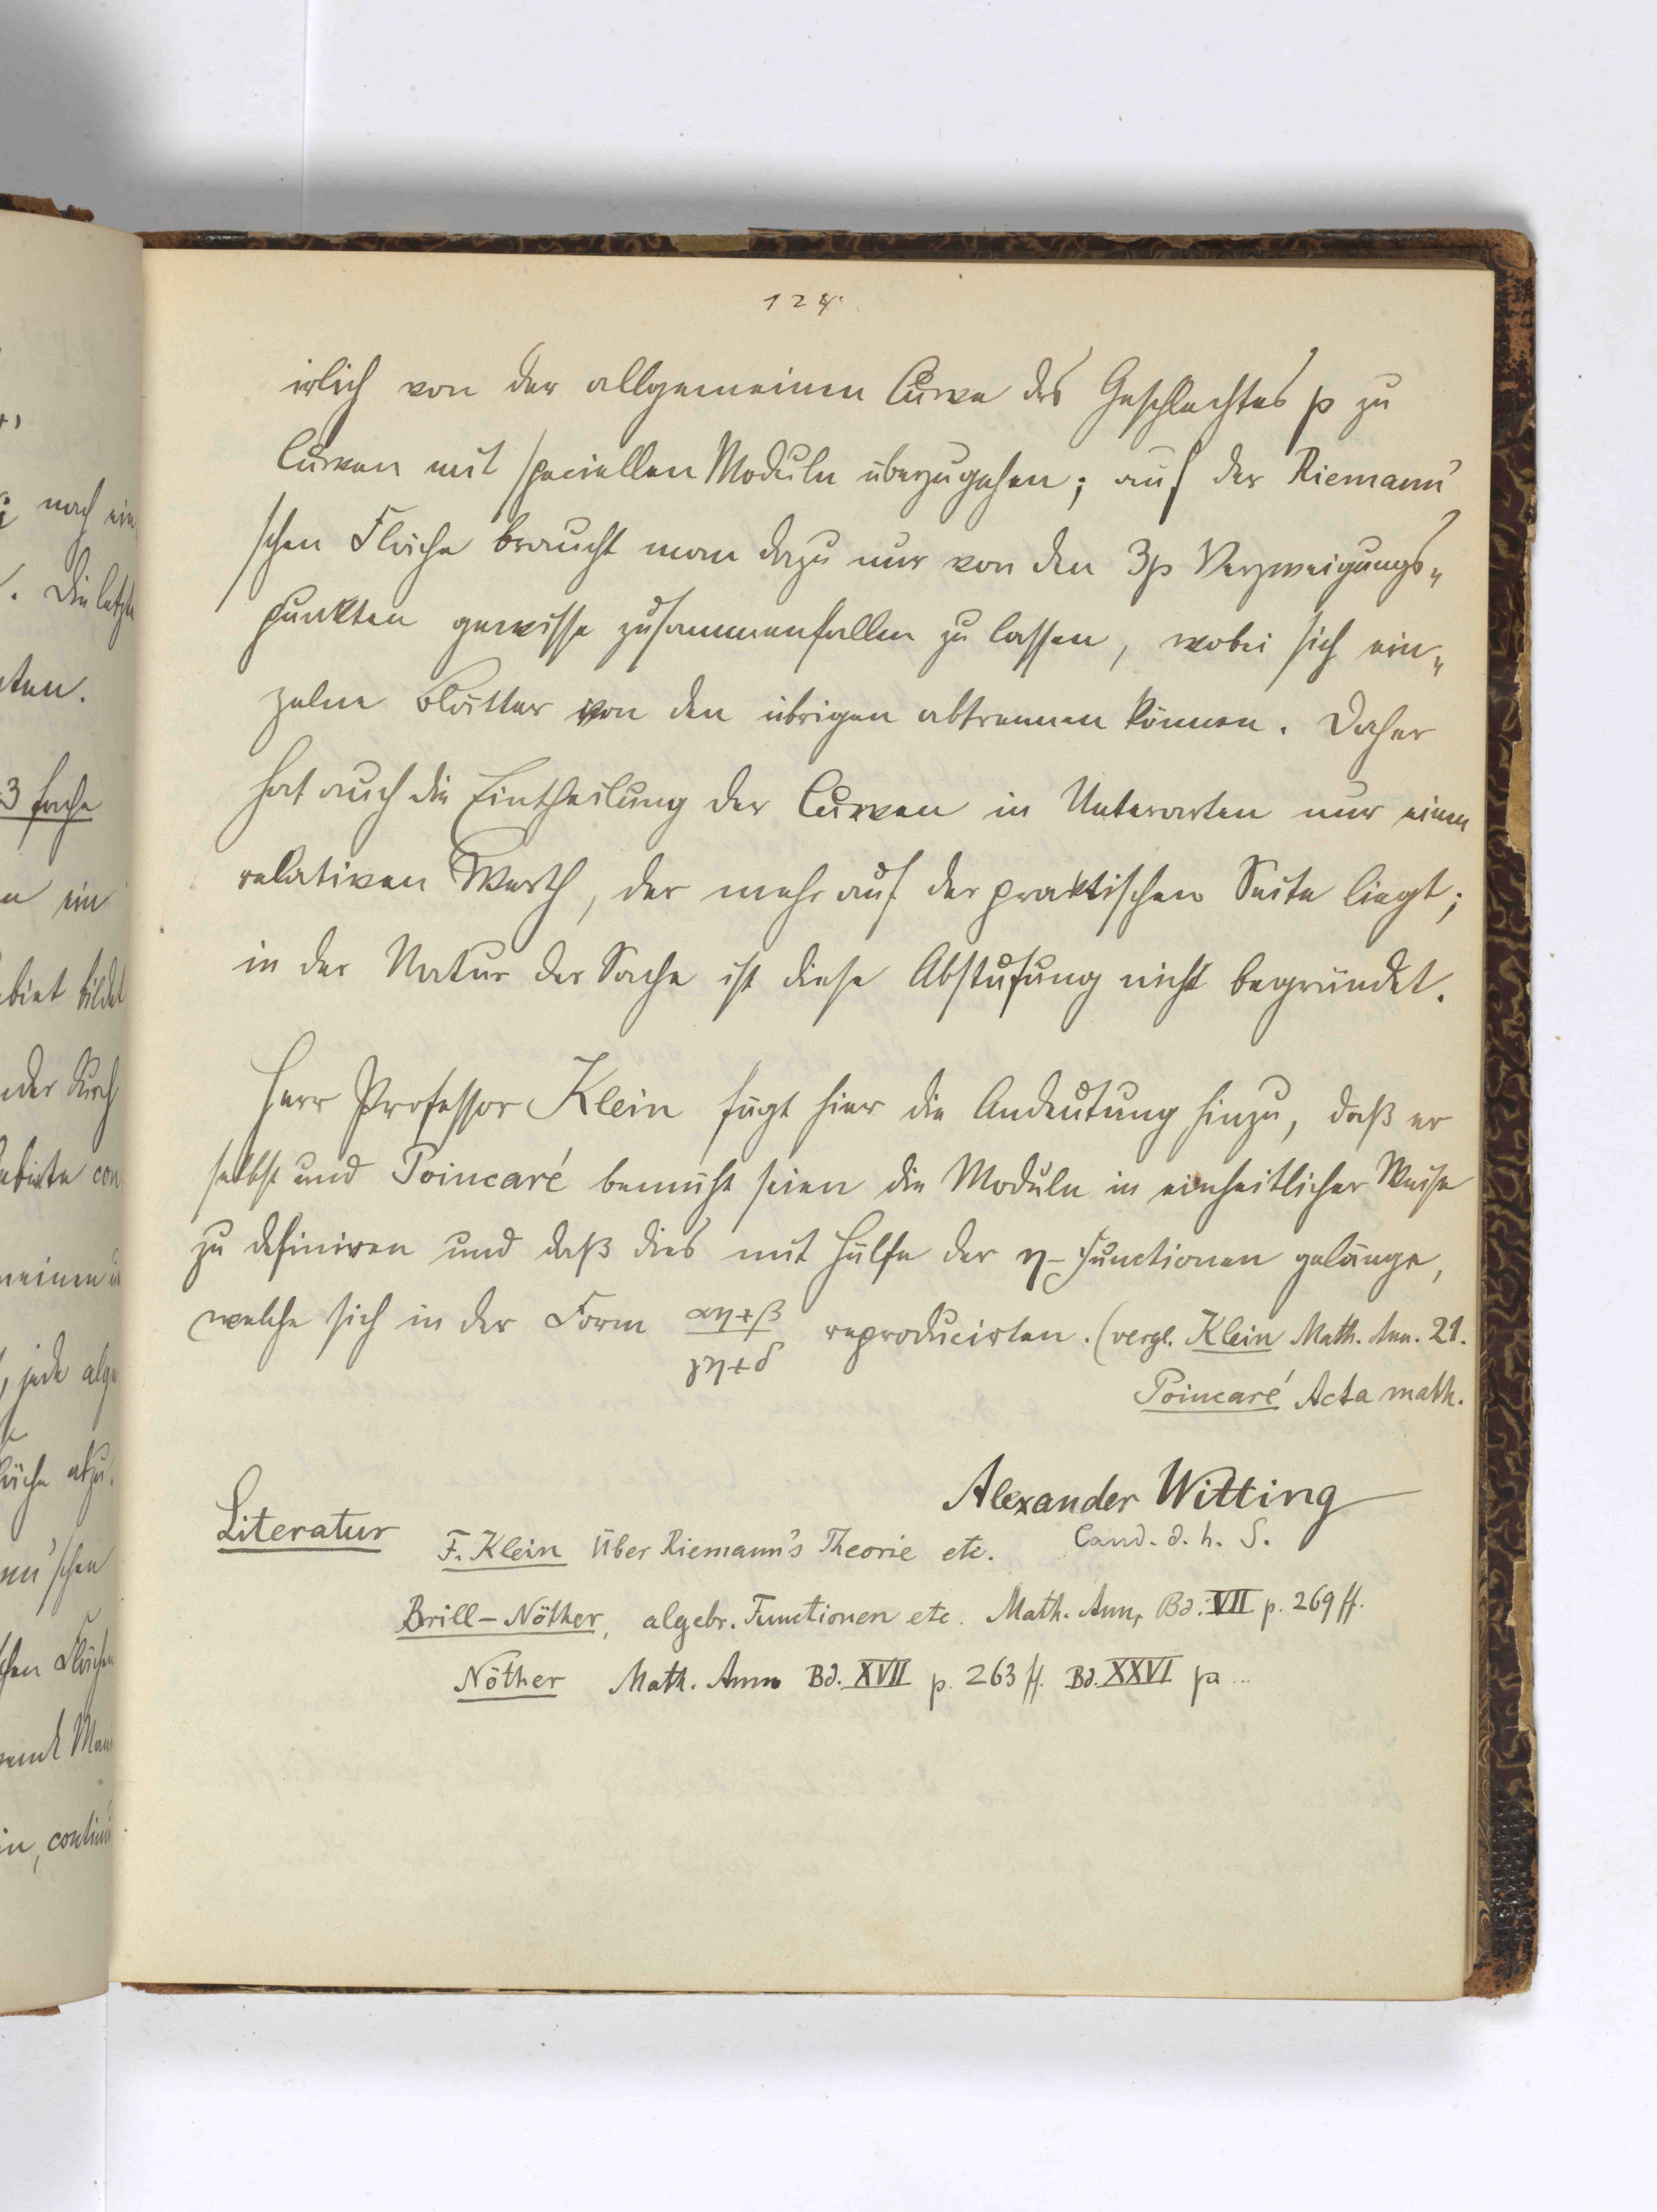 124.
irlich von der allgemeinen Curve des Geschlechtes p zu
Curven mit speciellen Moduln überzugehen; auf der Riemann'
schen Fläche braucht man dazu nur von den 3p Verzweigungs„
punkten gewisse zusammenfallen zu lassen, wobei sich ein„
zelne Blätter von den übrigen abtrennen können. Daher
hat auch die Eintheilung der Curven in Unterarten nur einen
relativen Werth, der mehr auf der praktischen Seite liegt;
in der Natur der Sache ist diese Abstufung nicht begründet.
Herr Professor Klein fügt hier die Andeutung hinzu, daß er
selbst und Poincaré bemüht seien die Moduln in einheitlicher Weise
zu definiren und daß dies mit Hülfe der η-Functionen gelänge,
welche sich in der Form αη+β / γη+δ reproducirten. (vergl. Klein Math. Ann. 21.
Poincaré Acta math.
Alexander Witting
Cand. d. h. S.
Literatur
F. Klein Über Riemann's Theorie etc.
Brill–Nöther, algebr. Functionen etc. Math. Ann, Bd. VII p. 269 ff.
Nöther Math. Ann Bd. XVII p. 263 ff. Bd. XXVI pa...
nach ein
. Die letzte
ten.
3 fache
ein
biet bildet
der durch
con
meinen
, jede alge
äche abzu.
nn'schen
schen Flächen
in, continu